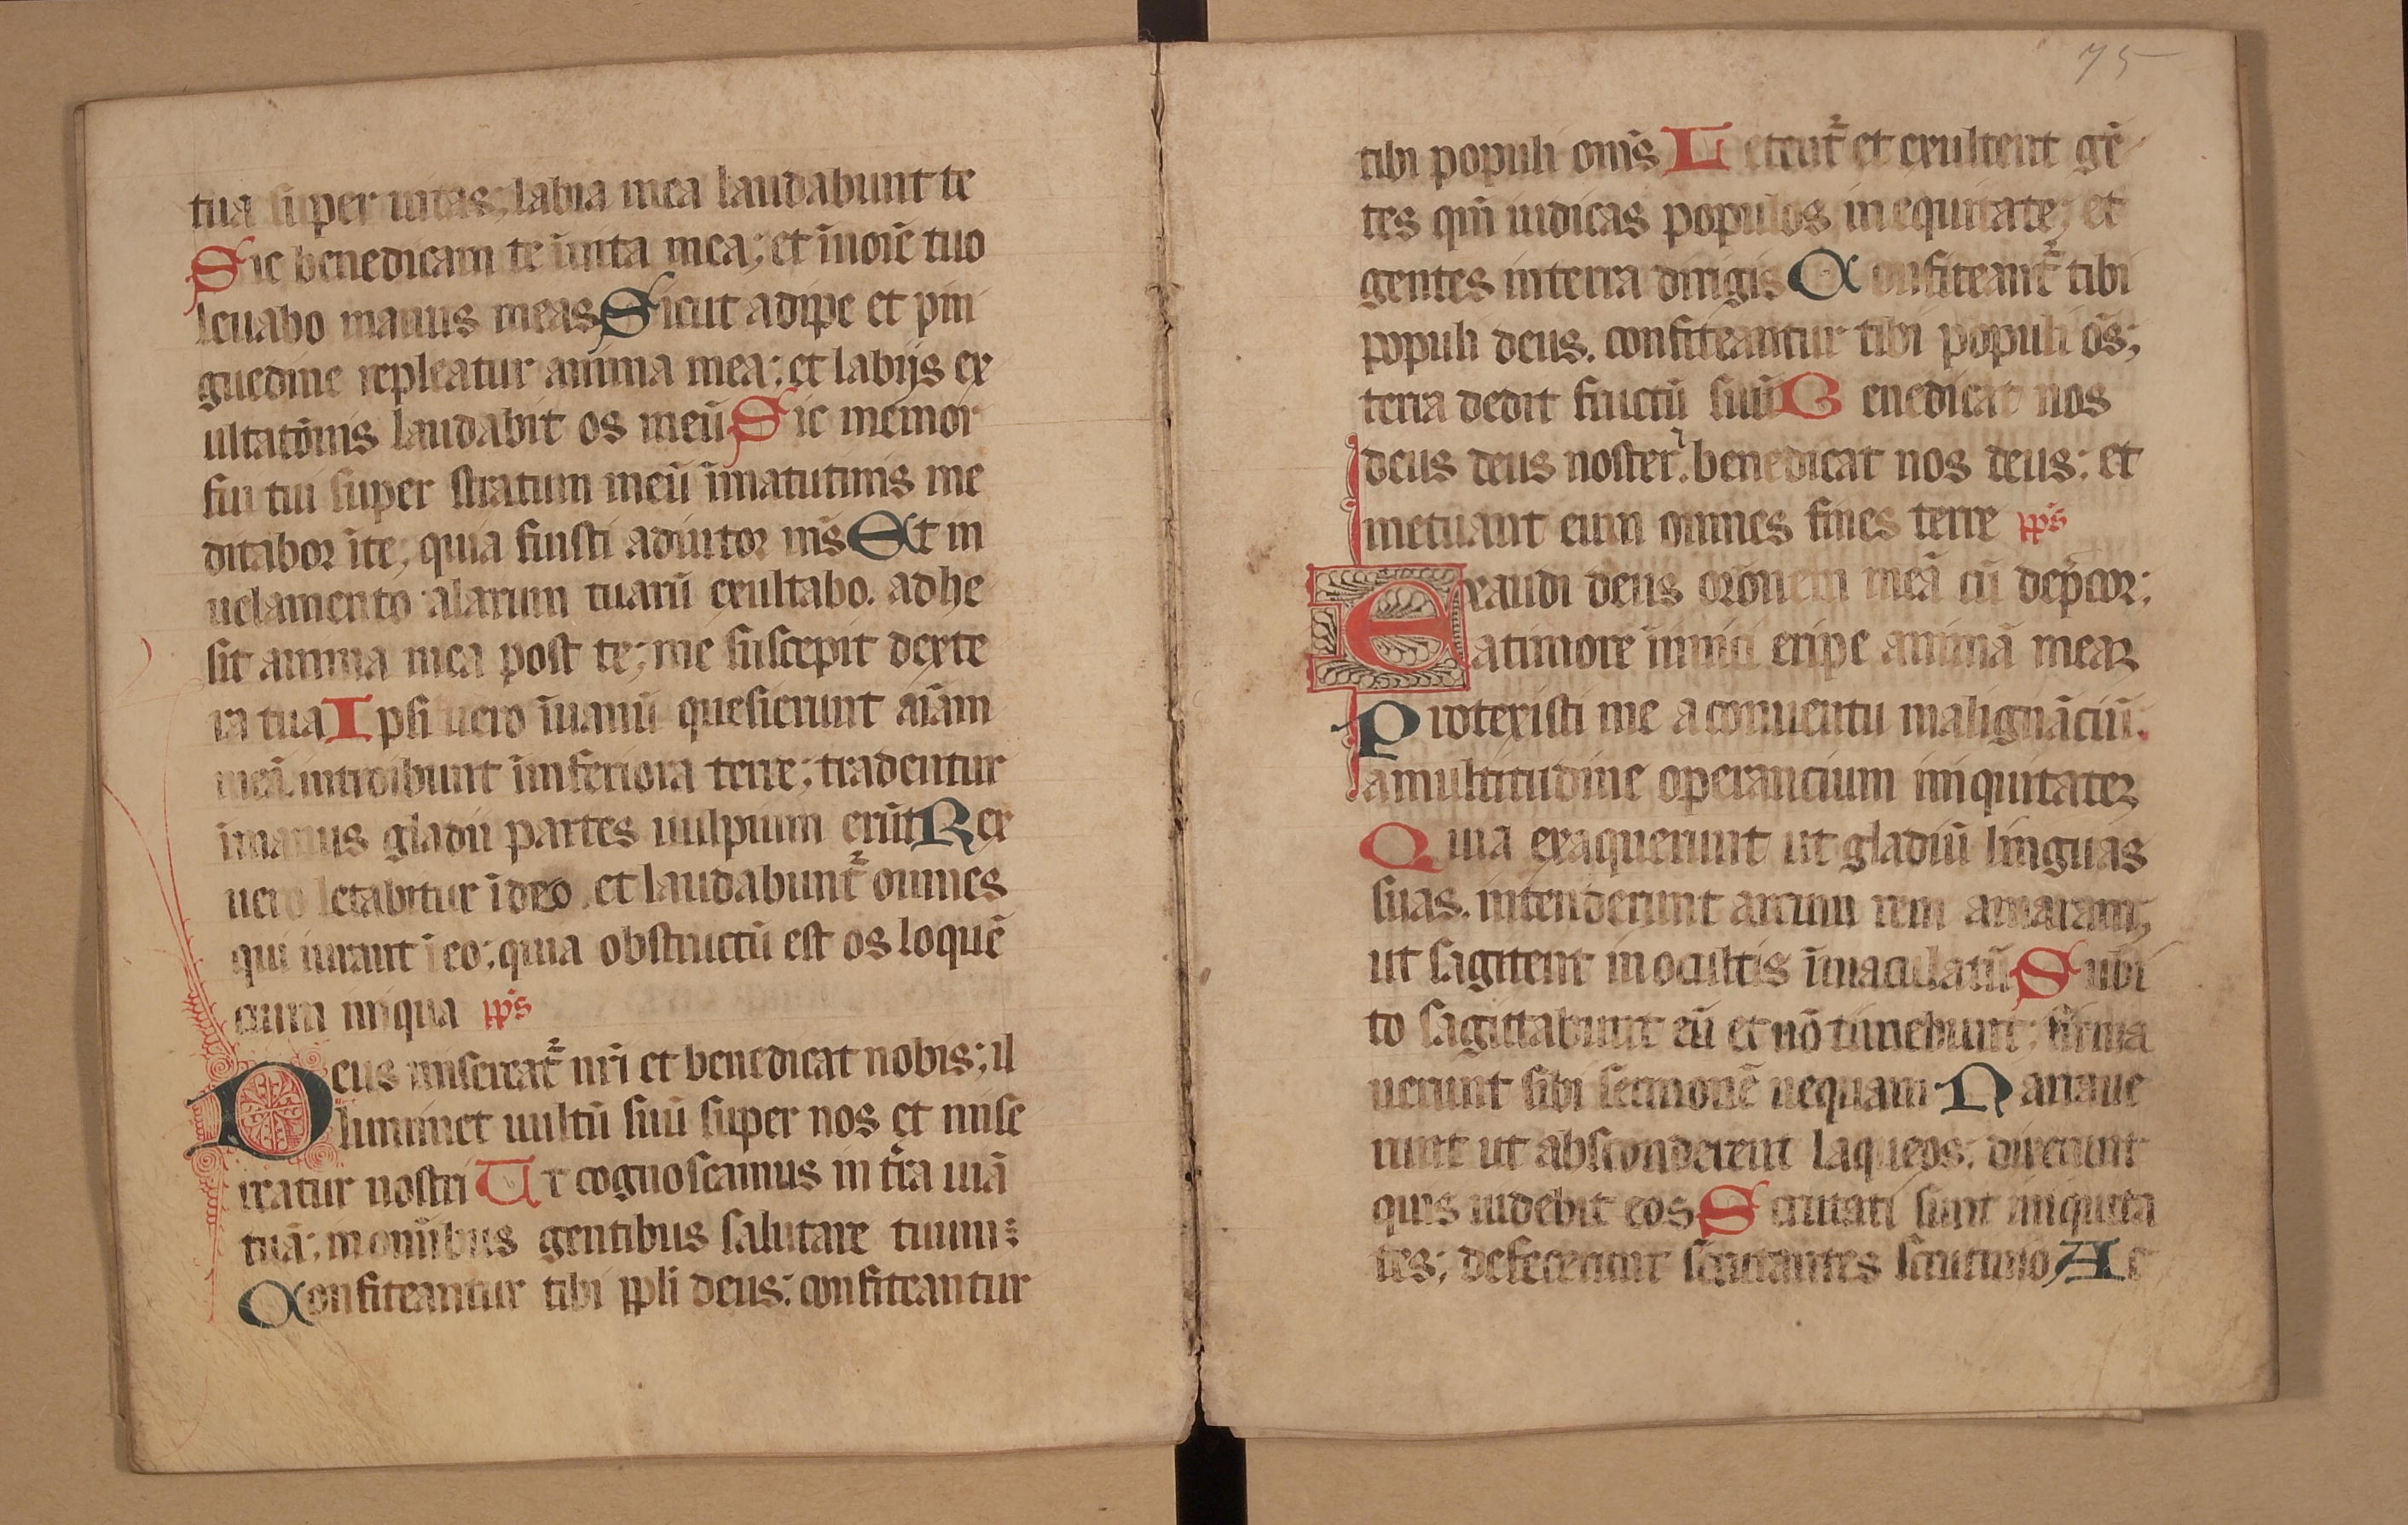 tua super uitas; labia mea laudabunt te
Sic benedicam te ī uita mea; et ī noīe tuo
leuabo manus meas Sicut adipe et pin
guedine repleatur anima mea; et labijs ex
ultatōnis laudabit os meū Sic memor
fui tui super stratum meū ī matutinis me
ditabor ī te; quia fuisti adiutor m̄s Et in
uelamento alarum tuarū exultabo. adhe
sit anima mea post te; me suscepit dexte
ra tua Ipsi uero ī uanū quesierunt aīam
meā. introibunt ī inferiora terre; tradentur
ī manus gladii partes uulpium erūt Rex
uero letabitur ī deo. et laudabunt᷑ omnes
qui iurant ī eo; quia obstructū est os loquē
cium iniqua pp̄s
Deus misereat᷑ nr̄i et benedicat nobis; il
luminet uultū suū super nos et mise
reatur nostri Ut cognoscamus in tr̄a uiā
tuā; in om̄ibus gentibus salutare tuum:
Confiteantur tibi ppli deus; confiteantur
75
tibi populi om̄s Letent᷑ et exultent gē
tes qm̄ iudicas populos in equitate; et
gentes in terra dirigis Confiteant᷑ tibi
populi deus. confiteantur tibi populi ōs;
terra dedit fructū suū Benedicat nos
deus deus noster. benedicat nos deus; et
metuant eum omnes fines terre pp̄s
Exaudi deus orōnem meā cū dep̄cor;
a timore īimici eripe animā meaꝫ
Protexisti me a conuentu malignāciū.
a multitudine operancium iniquitateꝫ
Quia exaquerunt ut gladiū linguas
suas. intenderunt arcum rem amaram;
ut sagitent in ocultis īmaculatū Subi
to sagittabunt eū et nō timebunt; firma
uerunt sibi sermonē nequam Narraue
runt ut absconderent laqueos; dixerunt
quis uidebit eos Scrutati sunt iniquita
tes; defecerunt scrutantes scrutinio Ac